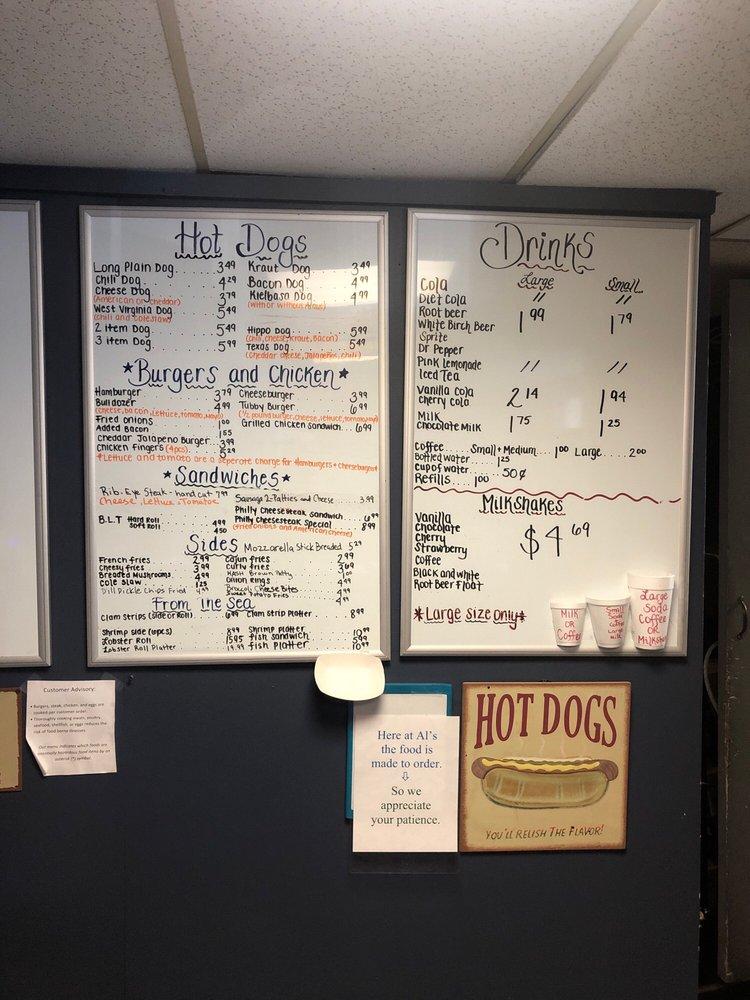 Hot Dogs
Long Plain Dog. 3.49 Kraut Dog. 3.49
Chili Dog 4.29 Bacon Dog 4.99
Cheese Dog 3.79 Kielbasa Dog 4.99
(American or cheddar) (with or without Klaus)
West Virginia Dog 5.49
(chili and coleslaw)
2 item Dog 5.49 Hippo Dog 5.99
(chili, cheese, Kraut, Bacon)
3 item Dog. 5.99 Texas Dog 5.49
(Cheddar cheese, Jalapeños, chili)
*Burgers and Chicken*
Hamburger 3.79 Cheeseburger 3.99
Bulldozer 4.99 Tubby Burger 6.99
(cheese, bacon, lettuce, tomato, mayo) (1/2 pound burger, cheese, lettuce, tomato, mayo)
Fried onions 1.00 Grilled Chicken Sandwich 6.99
Added Bacon 1.55
Cheddar Jalapeno Burger 3.99
Chicken Fingers (4pcs) 5.29
*Lettuce and tomato are a seperate charge for Hamburgers + Cheeseburgers*
*Sandwiches*
Rib-Eye Steak - hand cut 7.99 Sausage 2-Patties and Cheese 3.99
Cheese, Lettuce, Tomatoe
Philly Cheesesteak Sandwich 6.99
B.L.T Hard Roll 4.99 Philly Cheesesteak Special 8.99
Soft Roll 4.50 (fried onions and American cheese)
Sides Mozzarella Stick Breaded 5.29
French fries 2.99 Cajun fries 2.99
Cheesy fries 3.99 Curly fries 3.69
Breaded Mushrooms 4.99 Hash Brown Patty 1.00
Cole slaw 1.25 Onion Rings 4.99
Dill Pickle Chips Fried 4.99 Broccoli Cheese Bites
Sweet Potato Fries
From the Sea
Clam strips (side or Roll) 6.99 Clam Strip Platter 8.99
Shrimp side (10pcs) 8.99 Shrimp Platter 10.99
Lobster Roll 15.95 fish sandwich 8.99
Lobster Roll Platter 19.99 fish platter 10.99
Drinks
Large Small
Cola
Diet Cola // //
Root beer
White Birch Beer 1.99 1.79
Sprite
Dr Pepper
Pink Lemonade // //
Iced Tea
Vanilla Cola 2.14 1.94
Cherry Cola
Milk 1.75 1.25
Chocolate Milk
Coffee Small + Medium 1.00 Large 2.00
Bottled water 1.25
Cup of water 50¢
Refills 1.00
Milkshakes
Vanilla
Chocolate
Cherry $4.69
Strawberry
Coffee
Black and white
Root Beer Float
*Large size only*
Milk
OR
Coffee
Small
Soda
Coffee
Large
Milk
Large
Soda
Coffee
OR
Milkshake
Customer Advisory:
• Burgers, steak, chicken, and eggs are
cooked per customer order.
• Thoroughly cooking meats, poultry,
seafood, shellfish, or eggs reduces the
risk of food borne illnesses
Our menu indicates which foods are
potentially hazardous food items by an
asterisk (*) symbol.
Here at Al's
the food is
made to order.
⇩
So we
appreciate
your patience.
HOT DOGS
YOU'LL RELISH THE FLAVOR!